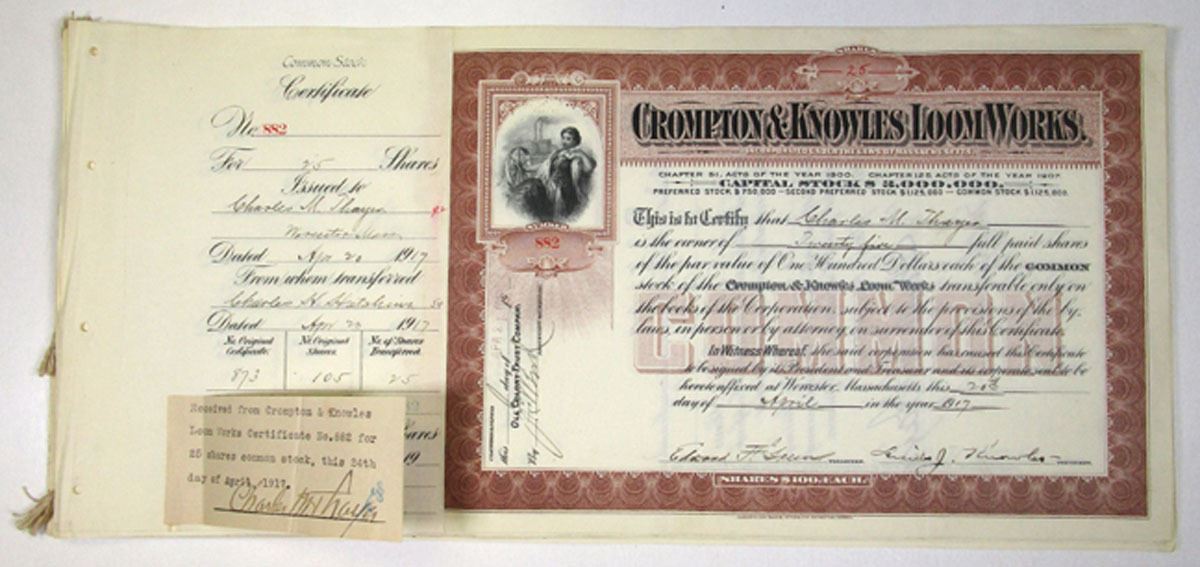 Common Stock
Certificate
No 882
For 25 Shares
Issued to
Charles M. Thayer
Worcester Mass
Dated Apr. 20 1917
From whom transferred
Charles H. Hutchins
Dated Apr 20 1917
No. Original Certificate.
No. Original Shares.
No. of Shares Transferred.
873 105 25
Shares
19
Received from Crompton & Knowles
Loom Works Certificate No.882 for
25 shares common stock, this 24th
day of April, 1917.
Charles M Thayer
SHARES
25
CROMPTON & KNOWLES LOOM WORKS.
CHAPTER 51, ACTS OF THE YEAR 1900. CHAPTER 125, ACTS OF THE YEAR 1907.
CAPITAL STOCK $3,000,000.
PREFERRED STOCK $750,000 – SECOND PREFERRED STOCK $1,125,000 – COMMON STOCK $1,125,000.
NUMBER
882
This is to Certify that Charles M. Thayer
is the owner of Twenty five full paid shares
of the par value of One Hundred Dollars each of the COMMON
stock of the Crompton & Knowles Loom Works transferable only on
the books of the Corporation, subject to the provisions of the by-
laws, in person or by attorney on surrender of this Certificate.
COMMON
In Witness Whereof, the said corporation has caused this Certificate
to be signed by its President and Treasurer and its corporate seal to be
hereto affixed at Worcester, Massachusetts this 20th
day of April in the year 1917
TREASURER.
Knowles
PRESIDENT.
SHARES $100. EACH.
this day of 19
OLD COLONY TRUST COMPANY,
By